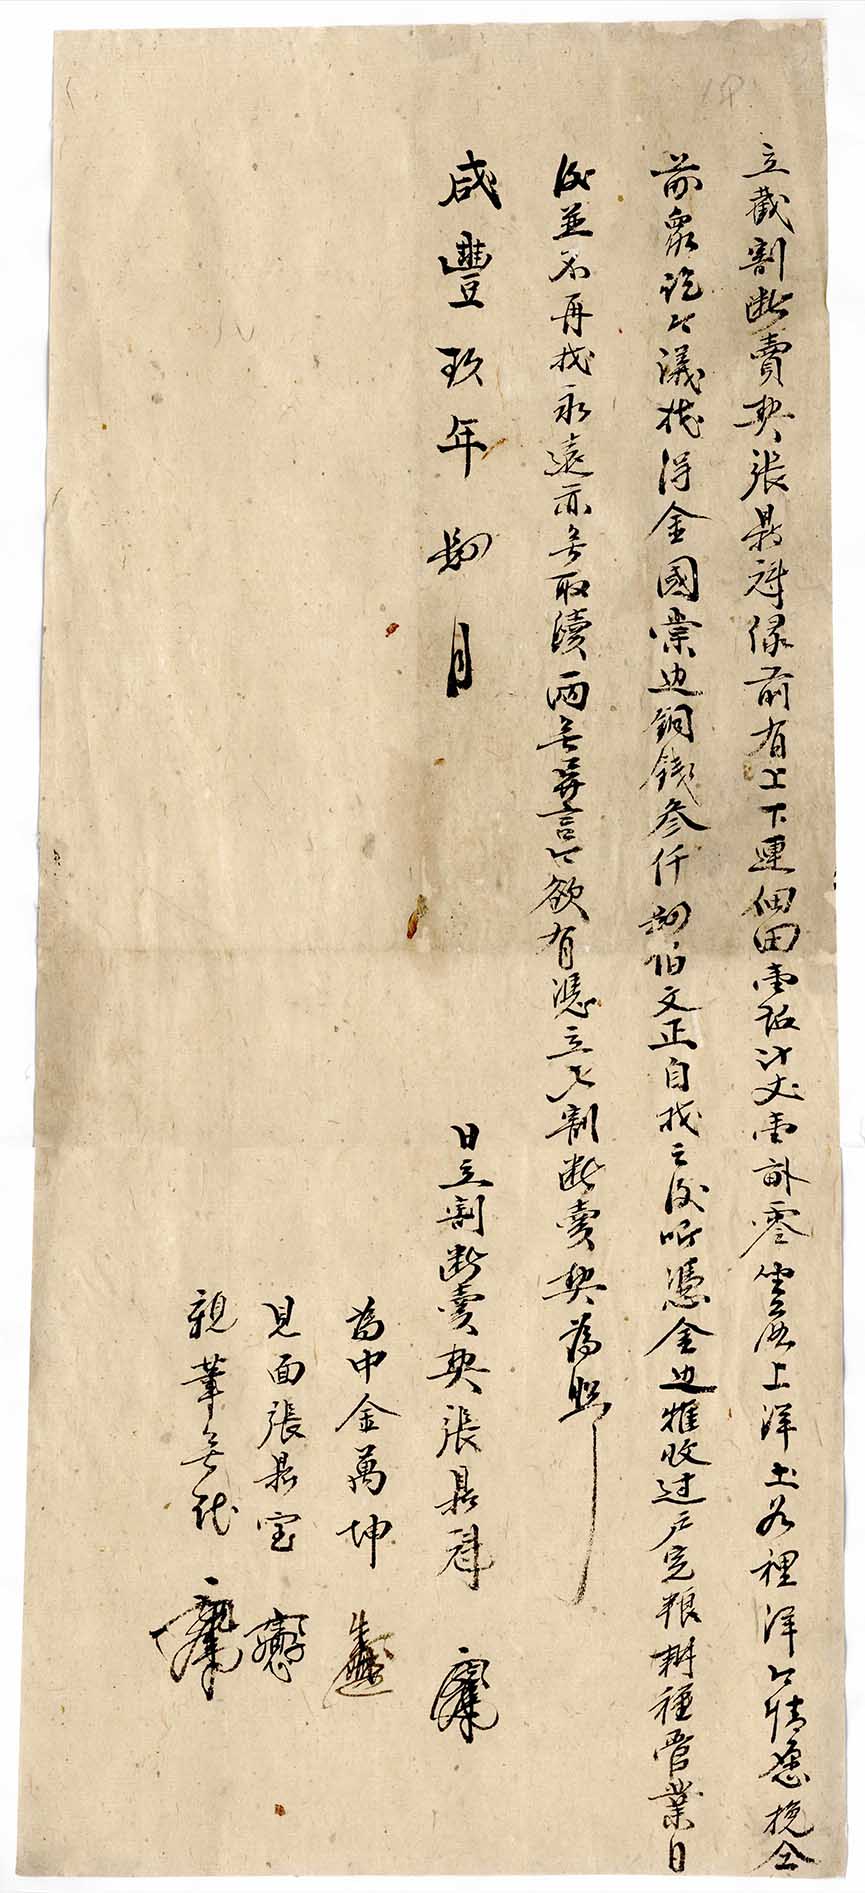 立截割断賣契張鼎 緣前有上下連佃田壹 計丈壹畝零坐落上洋土名裡洋今情愿挽仝
前衆 今議找得金國業边銅錢叁仟捌伯文正自找之後听憑金边推收过户完粮耕種管業日
後並不再找永遠亦无取贖両无異言今欲有憑立 割断賣契為照
咸豐玖年捌月
日立割断賣契張鼎
為中金萬坤
見面張鼎宝
親筆无代